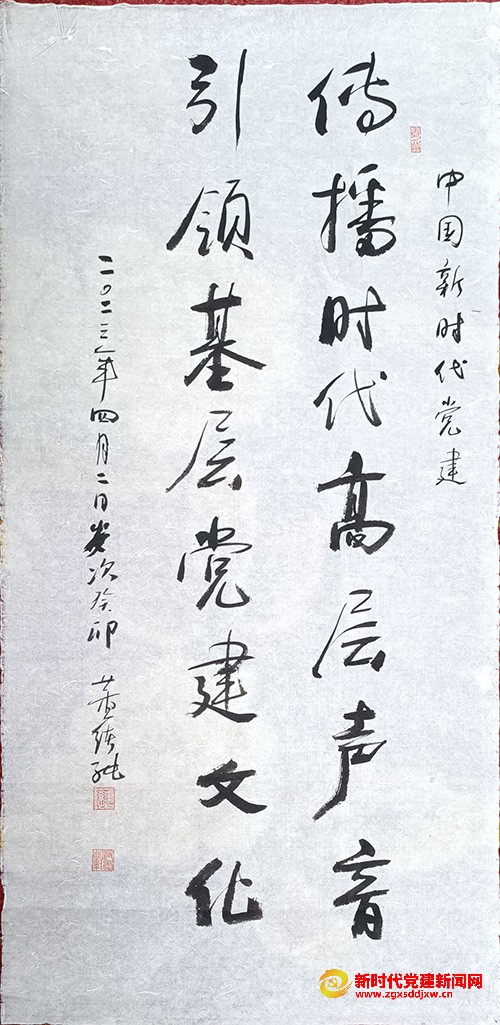 中国新时代党建
传播时代高层声音
引领基层党建文化
二〇二三年四月二日岁次癸卯
新时代党建新闻网
www.zgxsddjxw.cn